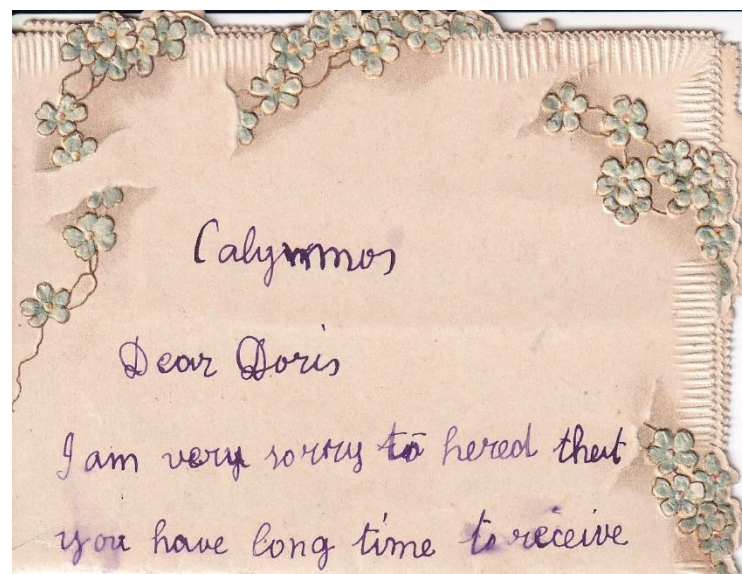 Calymmos
Dear Doris
I am very sorry to hered that
you have long time to receive